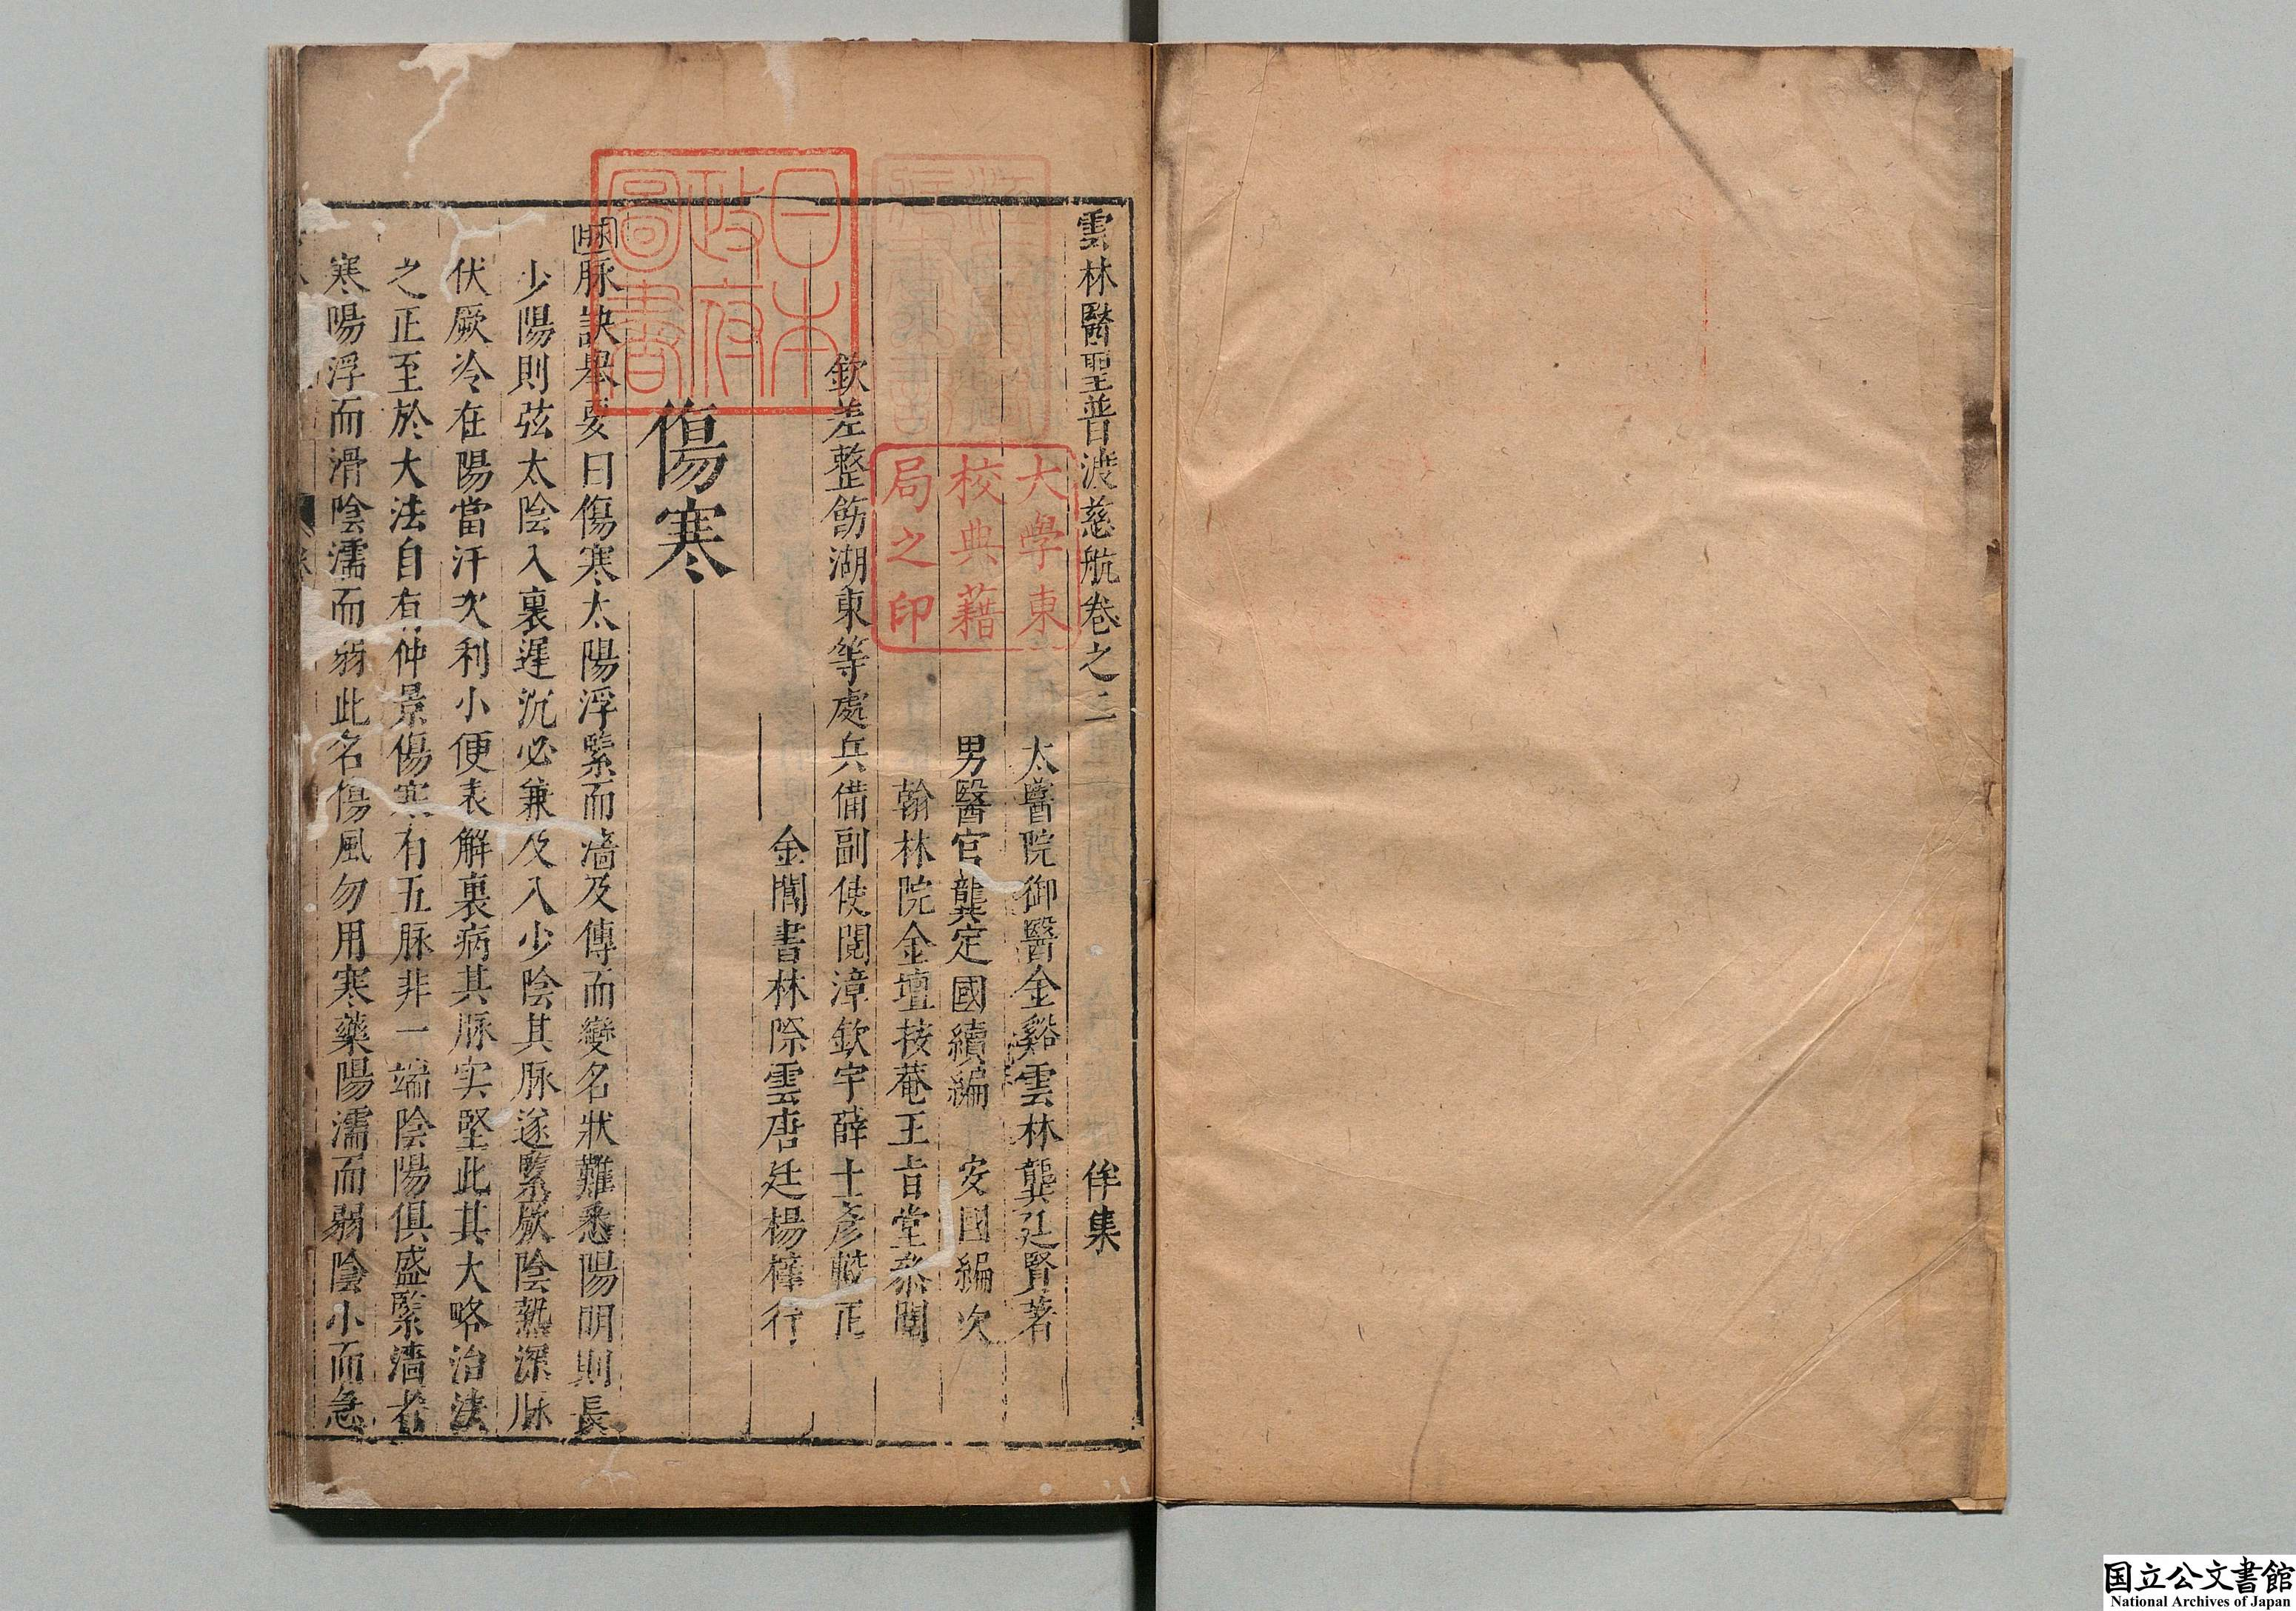 雲林醫聖普渡慈航卷之二　侔集
太醫院御醫金谿雲林龔廷賢著
男醫官龔定國續編　安國編次
翰林院金壇核菴王肯堂叅閱
欽差整飭湖東等處兵備副使閩漳欽宇薛士彥訂正
金閶書林際雲唐廷楊梓行
傷寒
脈脉訣舉要曰傷寒太陽浮緊而濇及傳而變名狀難悉陽明則長
少陽則弦太陰入裏遲沉必兼及入少陰其脉遂緊厥陰熱深脉
伏厥冷在陽當汗次利小便表解裏病其脉实堅此其大略治法
之正至於大法自有仲景傷寒有五脉非一端陰陽俱盛緊濇者
寒陽浮而滑陰濡而弱此名傷風勿用寒藥陽濡而弱陰小而急
日本
政府
圖書
大學東
校典藉
局之印
国立公文書館
National Archives of Japan